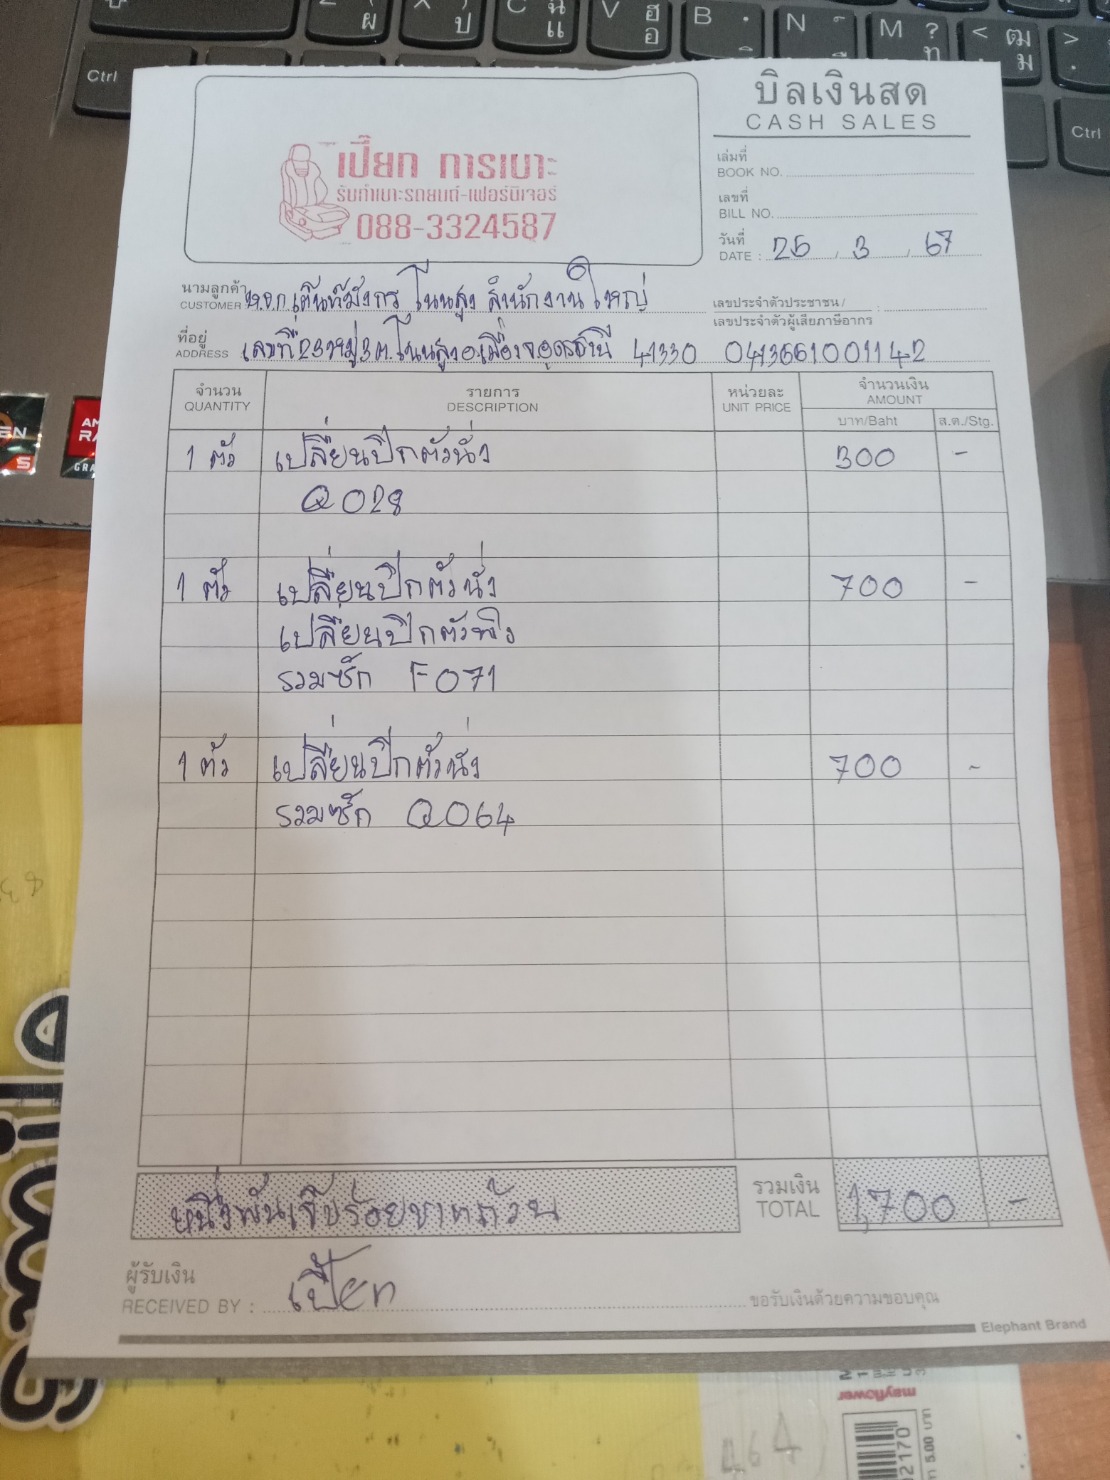 บิลเงินสด
CASH SALES
เล่มที่
BOOK NO.
เลขที่
BILL NO.
วันที่
DATE : 25 , 3 , 67
เปี๊ยก การเบาะ
รับทำเบาะรถยนต์-เฟอร์นิเจอร์
088-3324587
นามลูกค้า
CUSTOMER ห.จ.ก เต็นท์มังกร โนนสูง สำนักงานใหญ่
เลขประจำตัวประชาชน / :
เลขประจำตัวผู้เสียภาษีอากร
ที่อยู่
ADDRESS เลขที่ 23 หมู่ 3 ต.โนนสูง อ.เมือง จ.อุดรธานี 41330 0413661001142
จำนวน รายการ หน่วยละ จำนวนเงิน
QUANTITY DESCRIPTION UNIT PRICE AMOUNT
บาท/Baht ส.ต./Stg.
1 ตัว เปลี่ยนปีกตัวนั่ง 300 -
Q028
1 ตัว เปลี่ยนปีกตัวนั่ง 700 -
เปลี่ยนปีกตัวพิง
รวมซัก F071
1 ตัว เปลี่ยนปีกตัวนั่ง 700 -
รวมซัก Q064
หนึ่งพันเจ็ดร้อยบาทถ้วน
รวมเงิน
TOTAL 1,700 -
ผู้รับเงิน
RECEIVED BY : เปี๊ยก ขอรับเงินด้วยความขอบคุณ
Elephant Brand
smile
mayflower
464
02170
5.00 บาท
Ctrl
Ctrl